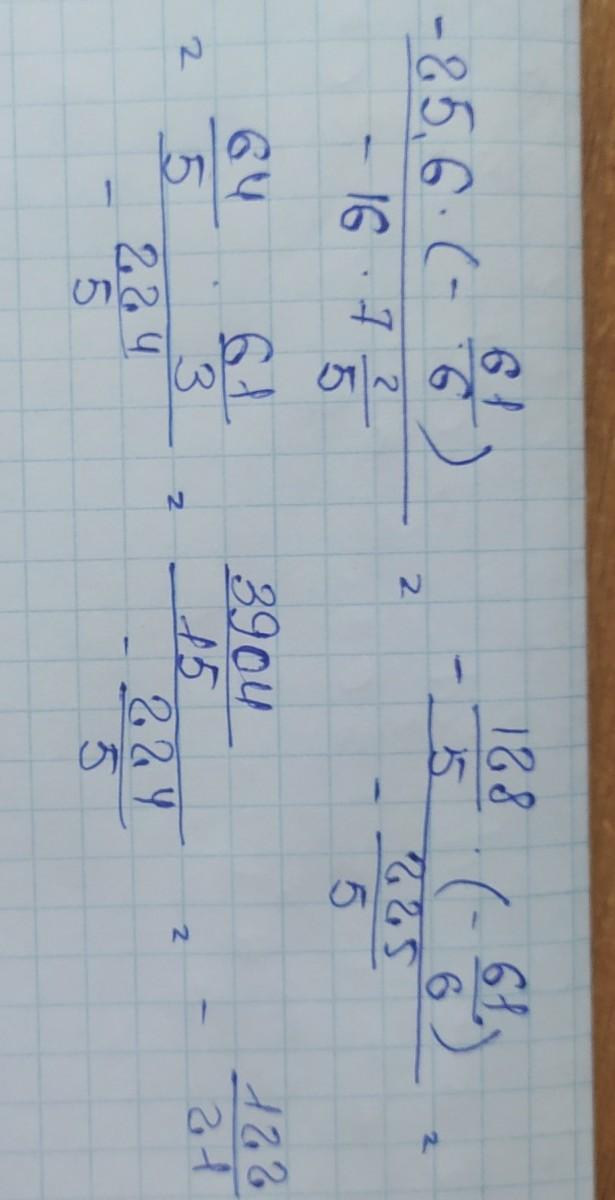 -25,6 · (- 61/6) / - 16 · 7 2/5 = - 128/5 · (- 61/6) / - 225/5 =
= 64/5 · 61/3 / - 224/5 = 3904/15 / - 224/5 = - 122/21